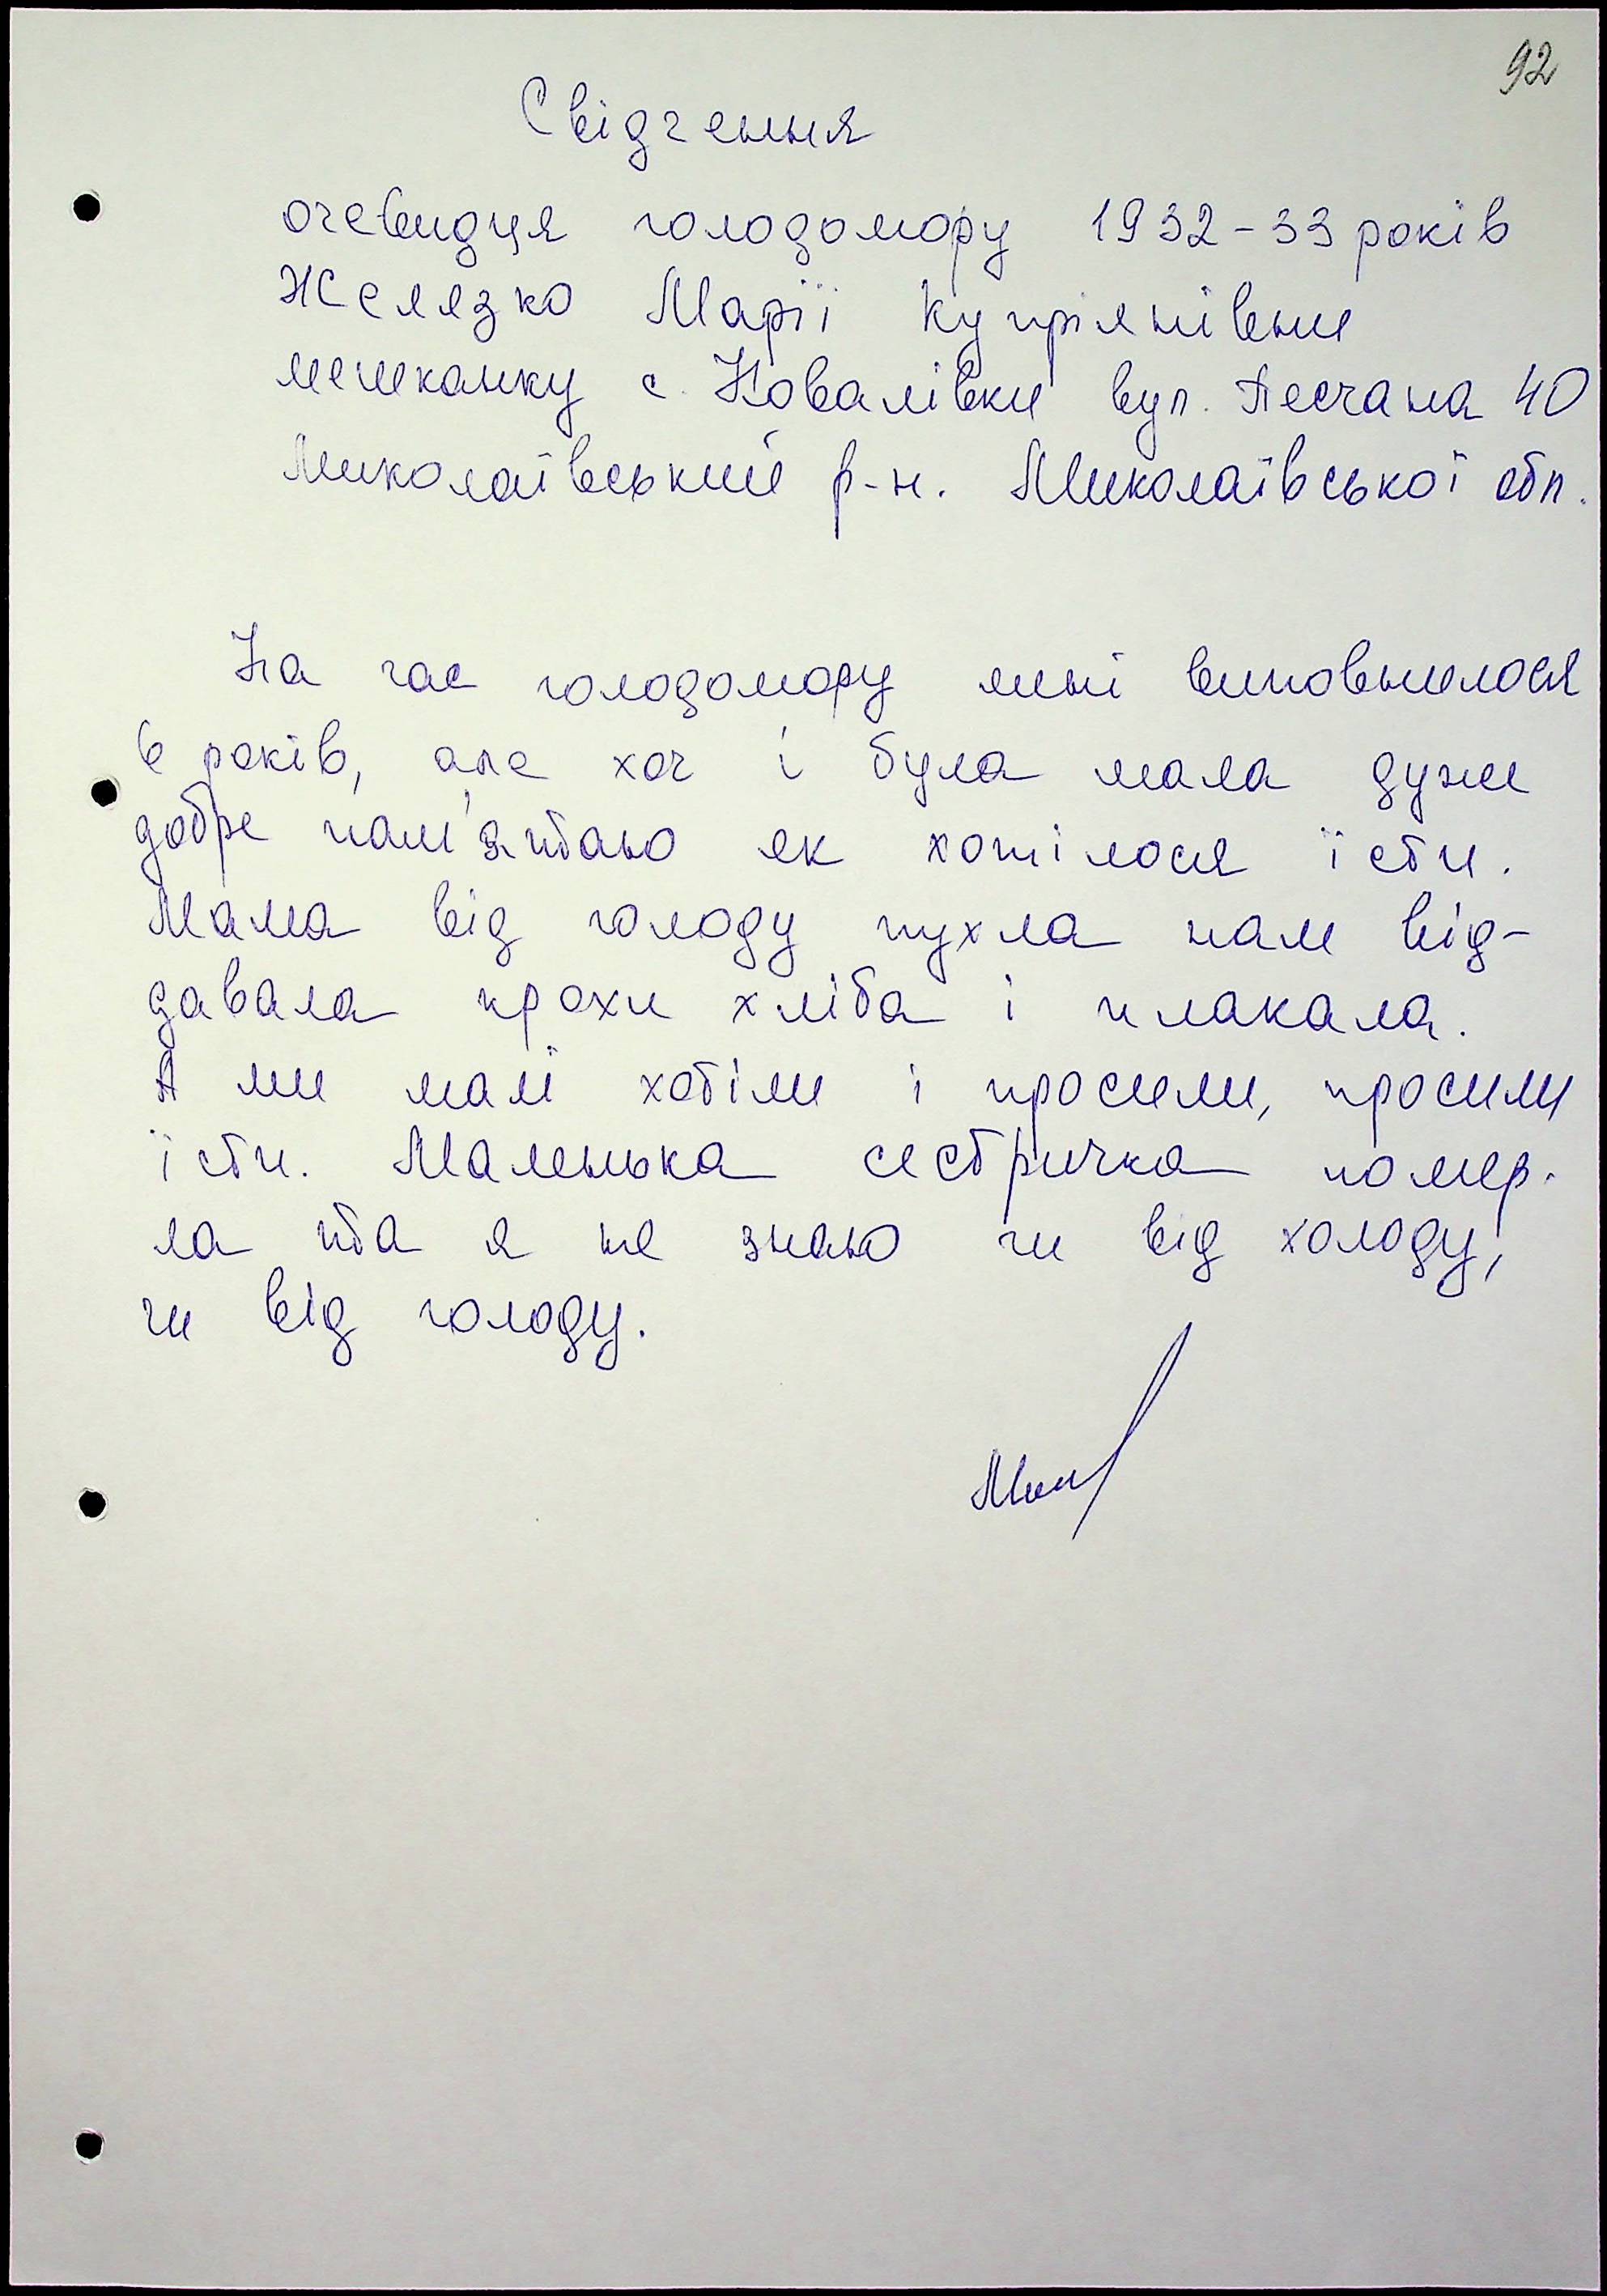 92
Свідчення
очевидця голодомору 1932-33 років
Желязко Марії Купріянівни
мешканку с. Ковалівки вул. Песчана 40
Миколаївський р-н. Миколаївської обл.
На час голодомору мені виповнилося
6 років, але хоч і була мала дуже
добре пам'ятаю як хотілося їсти.
Мама від голоду пухла нам від-
давала крохи хліба і плакала.
А ми малі хотіли і просили, просили
їсти. Маленька сестричка помер-
ла та я не знаю чи від холоду,
чи від голоду.